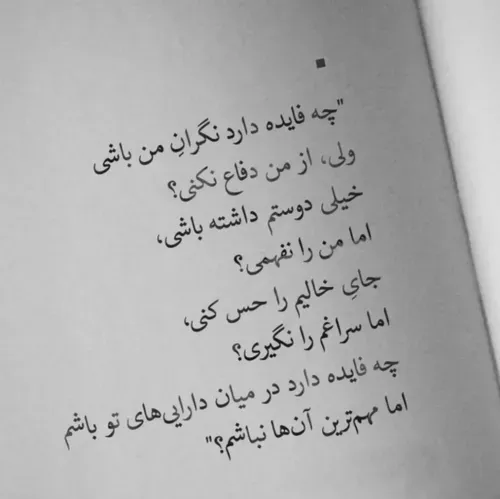 "چه فایده دارد نگرانِ من باشی
ولی، از من دفاع نکنی؟
خیلی دوستم داشته باشی،
اما من را نفهمی؟
جایِ خالیم را حس کنی،
اما سراغم را نگیری؟
چه فایده دارد در میان دارایی‌های تو باشم
اما مهم‌ترین آن‌ها نباشم؟"